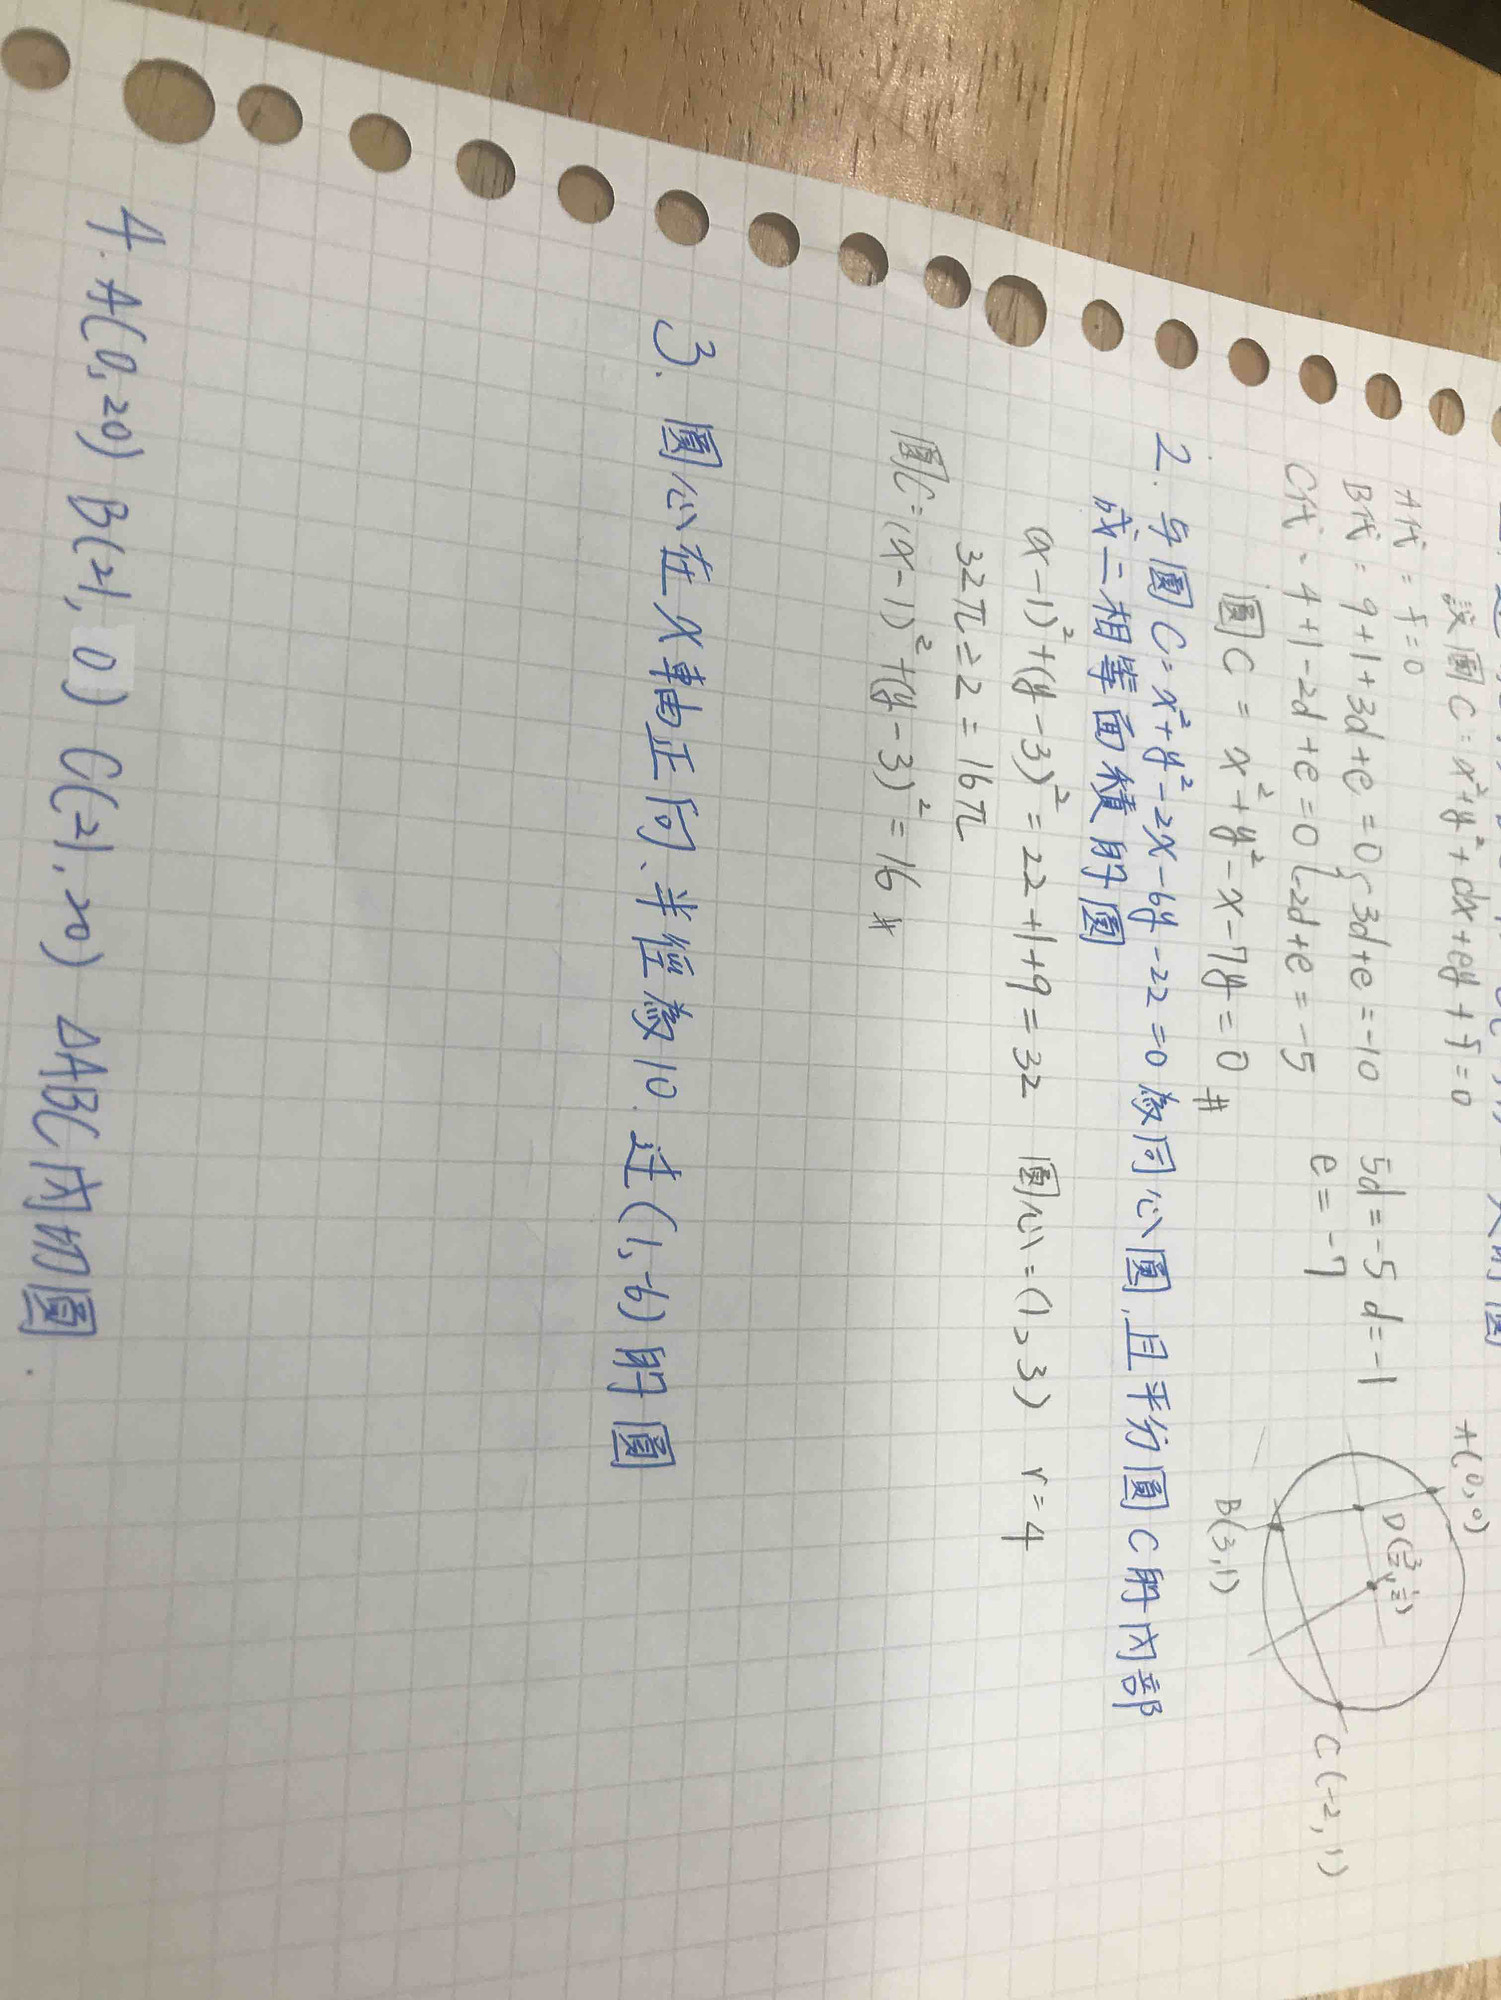 設圓C：x²+y²+dx+ey+f=0
A代：f=0
B代：9+1+3d+e=0 { 3d+e=-10 5d=-5 d=-1
C代：4+1-2d+e=0 { -2d+e=-5 e=-7
圓C = x²+y²-x-7y=0 #
A(0,0)
D(3/2,1/2)
B(3,1)
C(-2,1)
2. 与圓C=x²+y²-2x-6y-22=0為同心圓,且平分圓C的內部
成二相等面積的圓
(x-1)²+(y-3)²=22+1+9=32 圓心=(1,3) r=4
32π÷2=16π
圓C=(x-1)²+(y-3)²=16 #
3. 圓心在X軸正向、半徑為10.过(1,-6)的圓
4. A(0,20) B(21,0) C(21,20) ΔABC內切圓